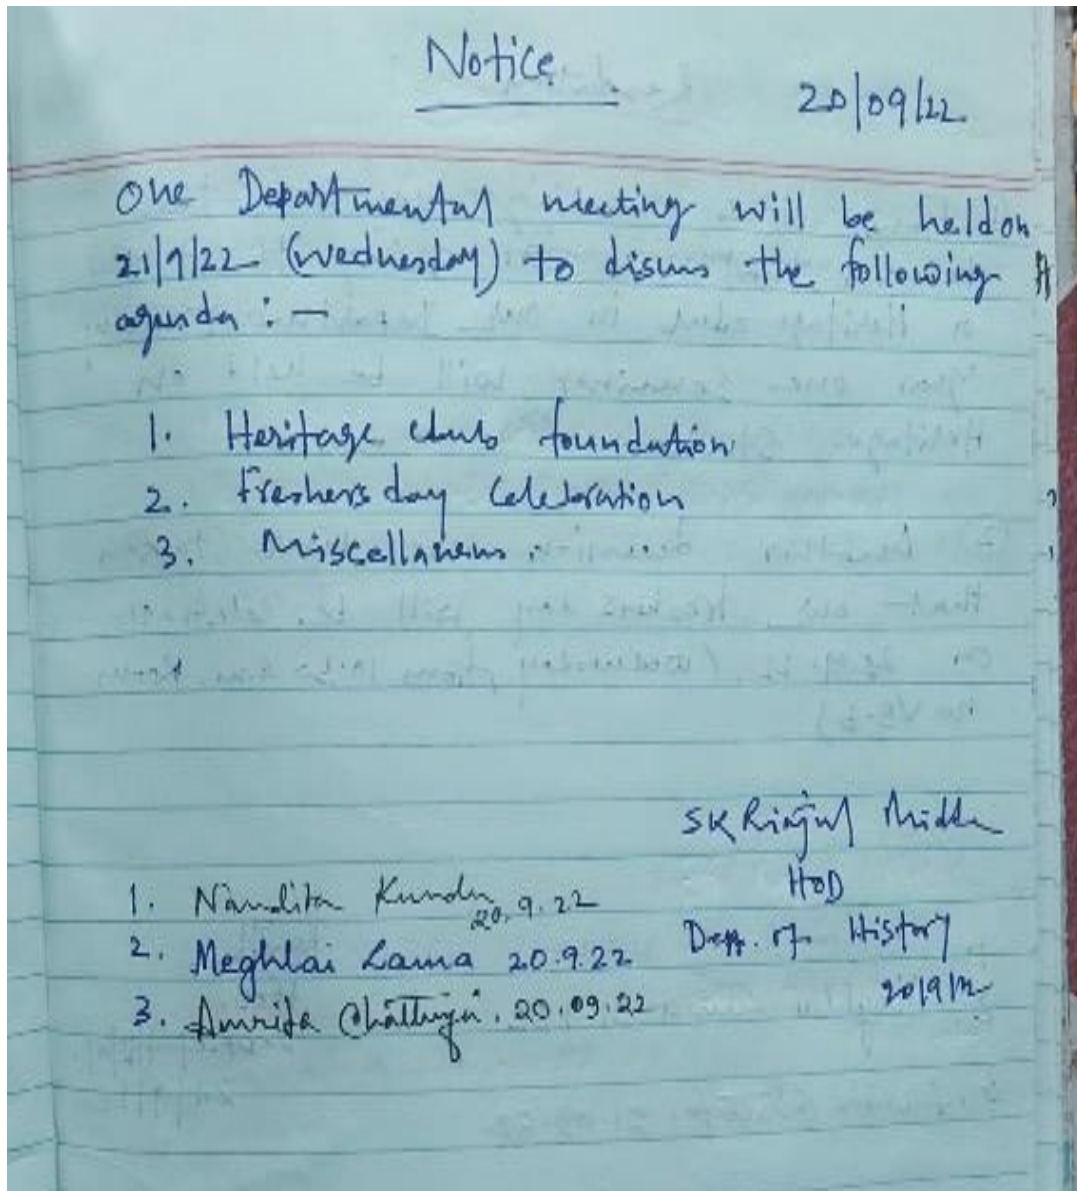 Notice
20/09/22
One Departmental meeting will be held on
21/9/22 (Wednesday) to discuss the following
agenda : —
1. Heritage club foundation
2. Freshers day Celebration
3. Miscellaneous.
SK Riajul Midda
HOD
Dept. of History
20/9/22
1. Nandita Kundu 20.9.22
2. Meghlai Lama 20.9.22
3. Amrita Chatterjee. 20.09.22